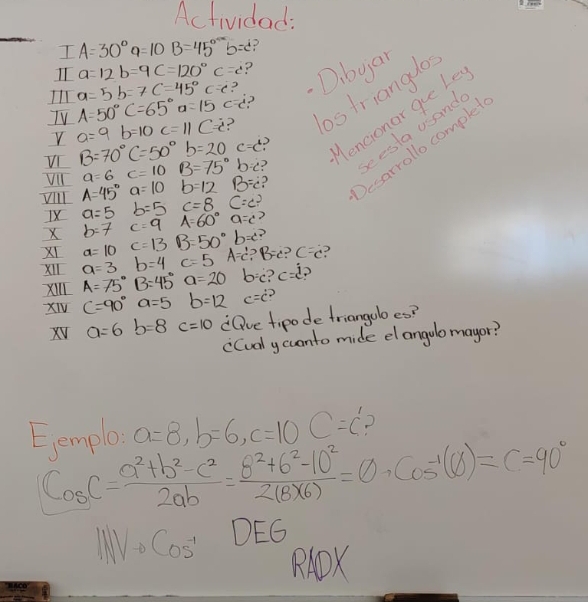 Actividad:
I A=30° a=10 B=45° b=¿?
II a=12 b=9 C=120° c=¿?
III a=5 b=7 C=45° c=¿?
IV A=50° C=65° a=15 c=¿?
V a=9 b=10 c=11 C=¿?
VI B=70° C=50° b=20 c=¿?
VII a=6 c=10 B=75° b=¿?
VIII A=45° a=10 b=12 B=¿?
IX a=5 b=5 c=8 C=¿?
X b=7 c=9 A=60° a=¿?
XI a=10 c=13 B=50° b=¿?
XII a=3 b=4 c=5 A=¿? B=¿? C=¿?
XIII A=75° B=45° a=20 b=¿? c=¿?
XIV C=90° a=5 b=12 c=¿?
XV a=6 b=8 c=10 ¿Que tipo de triangulo es?
¿Cual y cuanto mide el angulo mayor?
• Dibujar
los triangulos
• Mencionar que Ley
se esta usando
• Desarrollo completo
Ejemplo: a=8, b=6, c=10 C=¿?
Cos C = a²+b²-c² / 2ab = 8²+6²-10² / 2(8)(6) = 0 → Cos⁻¹(0) = C=90°
INV→Cos⁻¹ DEG
RADX